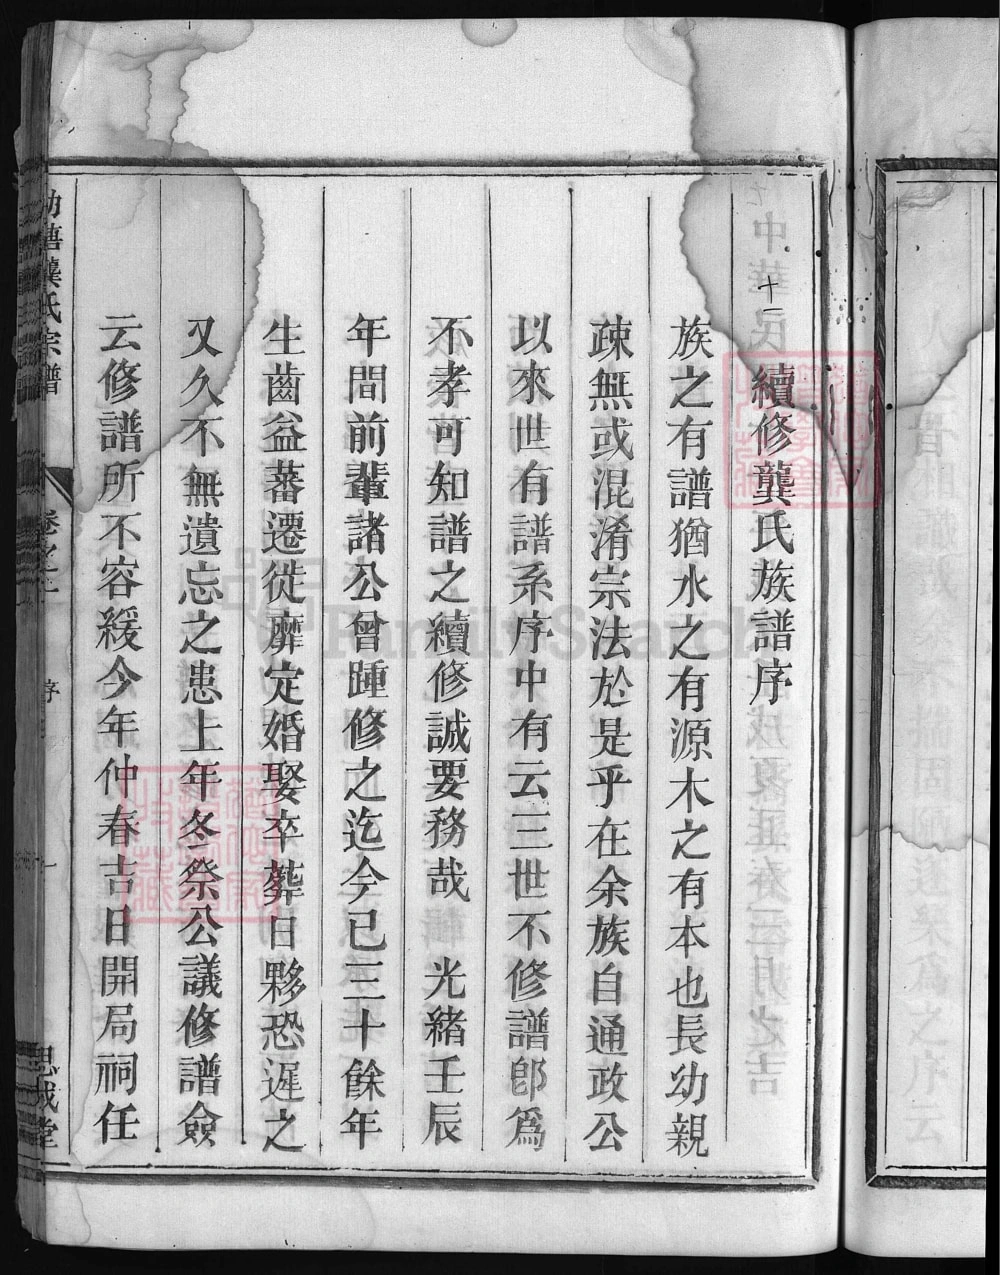 十一
續修龔氏族譜序
族之有譜猶水之有源木之有本也長幼親
疎無或混淆宗法於是乎在余族自通政公
以來世有譜系序中有云三世不修譜卽爲
不孝可知譜之續修誠要務哉 光緒壬辰
年間前輩諸公曾踵修之迄今已三十餘年
生齒益蕃遷徙靡定婚娶卒葬日夥恐遲之
又久不無遺忘之患上年冬祭公議修譜僉
云修譜所不容緩今年仲春吉日開局祠任
龔氏宗譜
卷之上
序
思成堂
FamilySearch